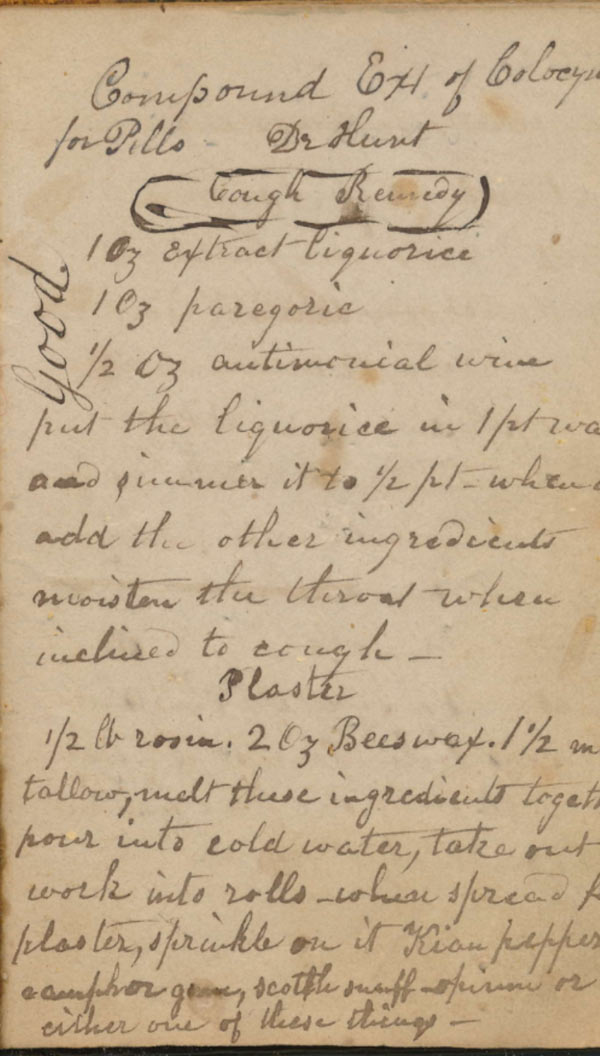 Compound Ext of Colocyn
for Pills Dr Hunt
Cough Remedy
Good
1 Oz extract liquorice
1 Oz paregoric
1/2 Oz antimonial wine
put the liquorice in 1 pt wa
and simmer it to 1/2 pt - when
add the other ingredients
moisten the throat when
inclined to cough -
Plaster
1/2 lb rosin. 2 Oz Beeswax. 1 1/2 m
tallow, melt these ingredients togeth
pour into cold water, take out
work into rolls - when spread f
plaster, sprinkle on it Kian pepper
camphor gum, scotch snuff - opium or
either one of these things -